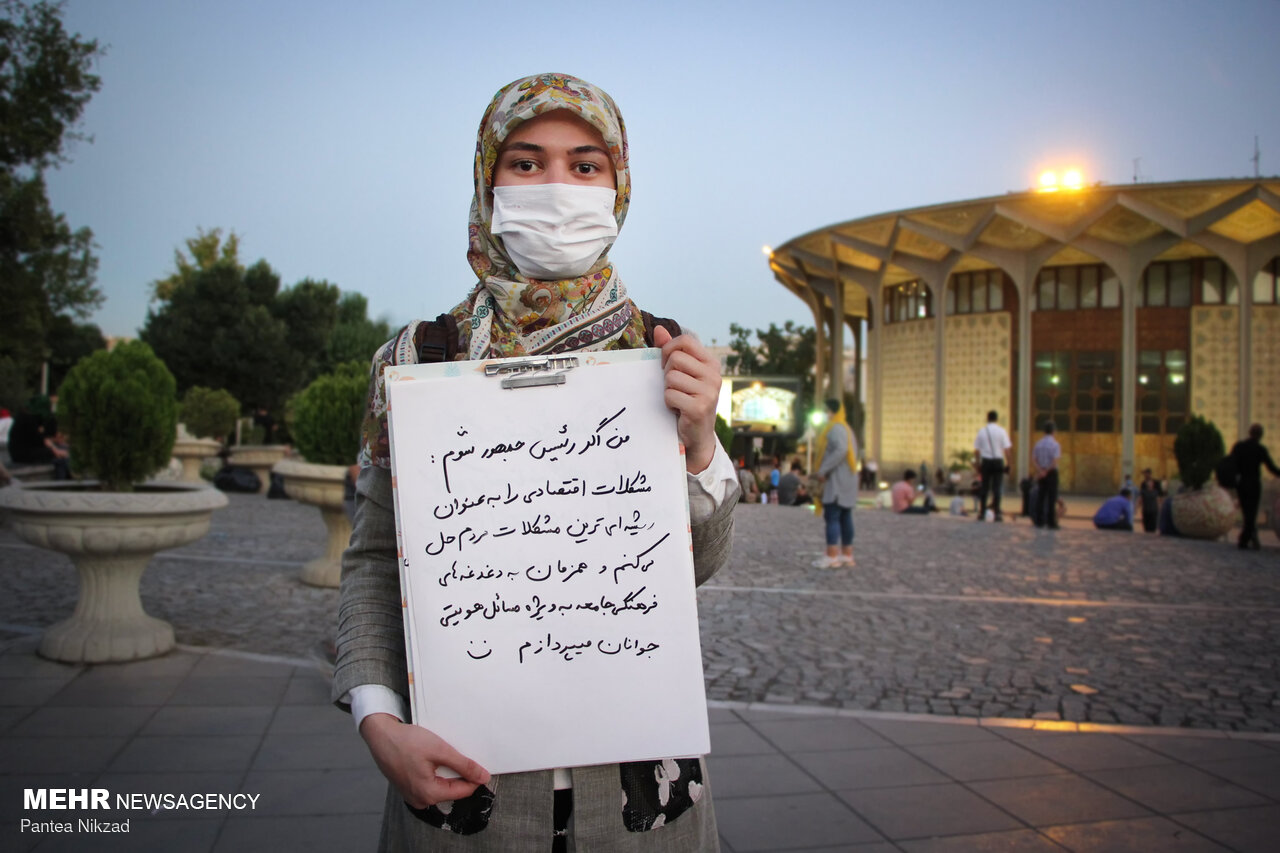 من اگر رئیس جمهور شوم :
مشکلات اقتصادی را به عنوان
ریشه‌ای ترین مشکلات مردم حل
می‌کنم و همزمان به دغدغه‌های
فرهنگی جامعه به ویژه مسائل هویتی
جوانان میپردازم
MEHR NEWSAGENCY
Pantea Nikzad